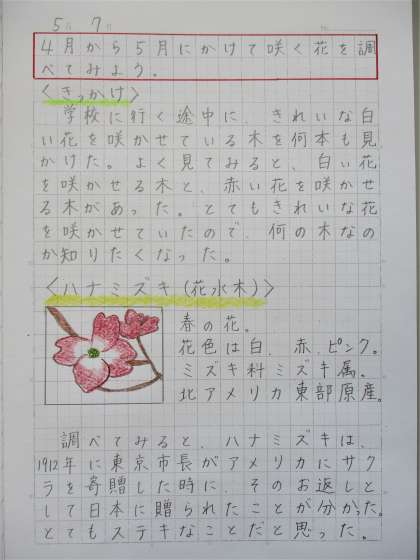 5月 7日
4月から5月にかけて咲く花を調
べてみよう。
〈きっかけ〉
学校に行く途中に、きれいな白
い花を咲かせている木を何本も見
かけた。よく見てみると、白い花
を咲かせる木と、赤い花を咲かせ
る木があった。とてもきれいな花
を咲かせていたので、何の木なの
か知りたくなった。
〈ハナミズキ(花水木)〉
春の花。
花色は白、赤、ピンク。
ミズキ科ミズキ属。
北アメリカ東部原産。
調べてみると、ハナミズキは、
1912年に東京市長がアメリカにサク
ラを寄贈した時に、そのお返しと
して日本に贈られたことが分かった。
とてもステキなことだと思った。